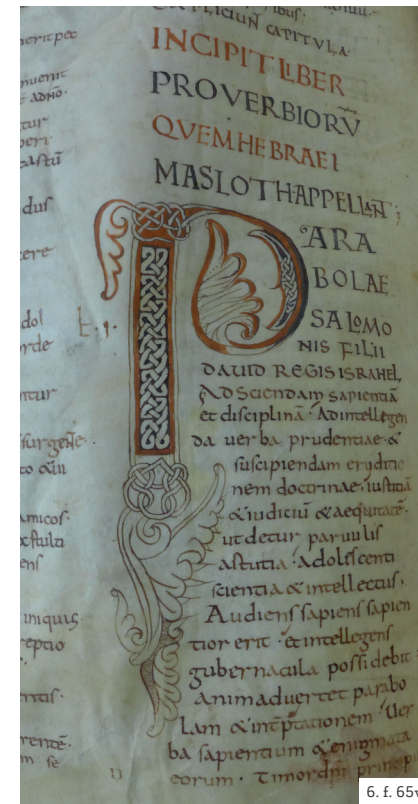 EXPLICIUN CAPITVLA.
INCIPIT LIBER
PROVERBIORV̄
QVEM HEBRAEI
MASLOTH APPELLAN̄T;
PARA
BOLAE
SALOMO
NIS FILII
DAUID REGIS ISRAHEL,
Ad sciendam sapientiā
et disciplinā. Ad intellegen
da uerba prudentiae &
suscipiendam eruditio
nem doctrinae. iustitiā
& iudiciū & aequitatē.
ut detur paruulis
astutia. adolescenti
scientia & intellectus.
Audiens sapiens sapien
tior erit. et intellegens
gubernacula possidebit.
animaduertet parabo
lam & int̄p̄tationem. Uer
ba sapientium & enigmata
eorum. Timor dn̄i princip
nerit pec
dus
cere
dol
orde
surgente.
amicos.
stulti
iniquis.
reptio
m se
6. f. 65v